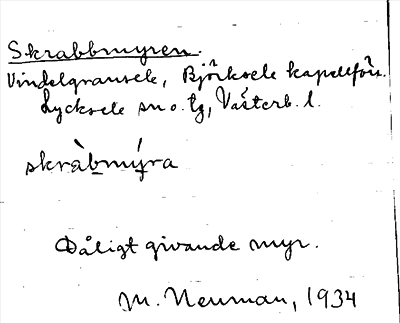 Skrabbmyren.
Vindelgransele, Björksele kapellförs.
Lycksele sn o. tg, Västerb. l.
skràbmýra
Dåligt givande myr.
M. Neuman, 1934